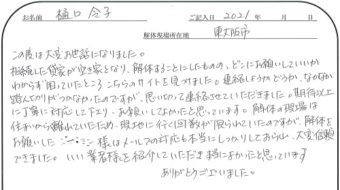 お名前 樋口 令子 ご記入日 2021年 月 日
解体現場所在地 東大阪市
この度は大変お世話になりました。
相続した貸家が空き家となり、解体することにしたものの、どこにお願いしていいか
わからず困っていたところこちらのサイトを見つけました。連絡しようかどうか、なかなか
踏んぎりがつかなかったのですが、思いきって連絡させていただきました。期待以上
に丁寧に対応して下さり、お願いしてよかったと思っています。解体の現場は
住まいから離れていたため、現地に行く回数が限られていたのですが、解体を
お願いした 様はメールでの対応も本当にしっかりしておられ、大変信頼
できました。いい業者様を紹介していただき本当によかったと思っています
ありがとうございました。